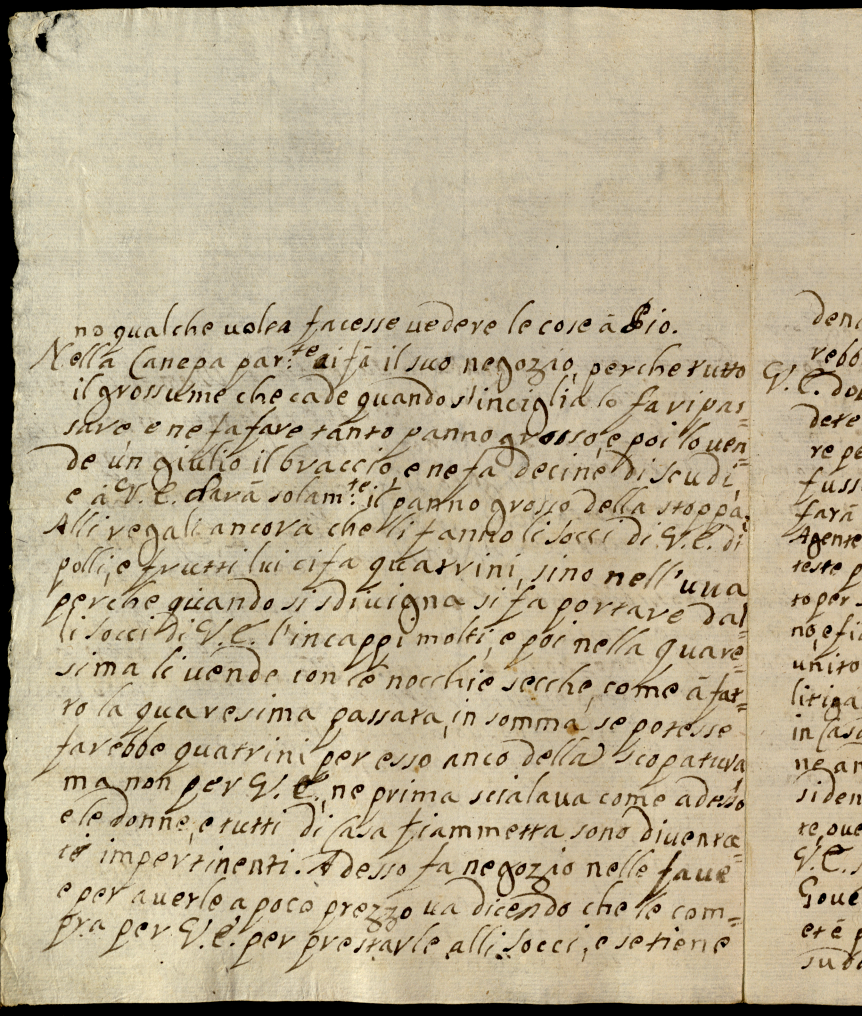 no qualche uolta facesse uedere le cose à Pio.
Nella Canepa par:te ci fà il suo negozio, perche tutto
il grossume che cade quando s'inciglia lo fa ripas=
sare, e ne fa fare tanto panno grosso, e poi lo uen=
de un giulio il braccio, e ne fa decine di scudi,
e à V. E. darà solam:te il panno grosso della stoppa.
Alli regali ancora che li fanno li socci di V. E. di
polli, e frutti lui ci fa quatrini, sino nell'uua
perche quando si sdiuigna si fa portare dal=
li socci di V. E. l'incappi molti, e poi nella quare=
sima li uende con le nocchie secche, come à fat=
to la quaresima passata, in somma se potesse
farebbe quatrini per esso anco della scopatura
ma non per V. E., ne prima scialaua come adesso
e le donne, e tutti di Casa fiammetta sono diuenta=
ti impertinenti. Adesso fa negozio nelle faue
e per auerle a poco prezzo ua dicendo che le com=
pra per V. E. per prestarle alli socci, e se tiene
dena
rebo
V. E. dou
dere
re pe
fuss
farà
Agente
teste p
to per
no, e fi
unito
litiga
in Casa
ne an
siden
te, que
V. E.
Goue
et è p
sudd